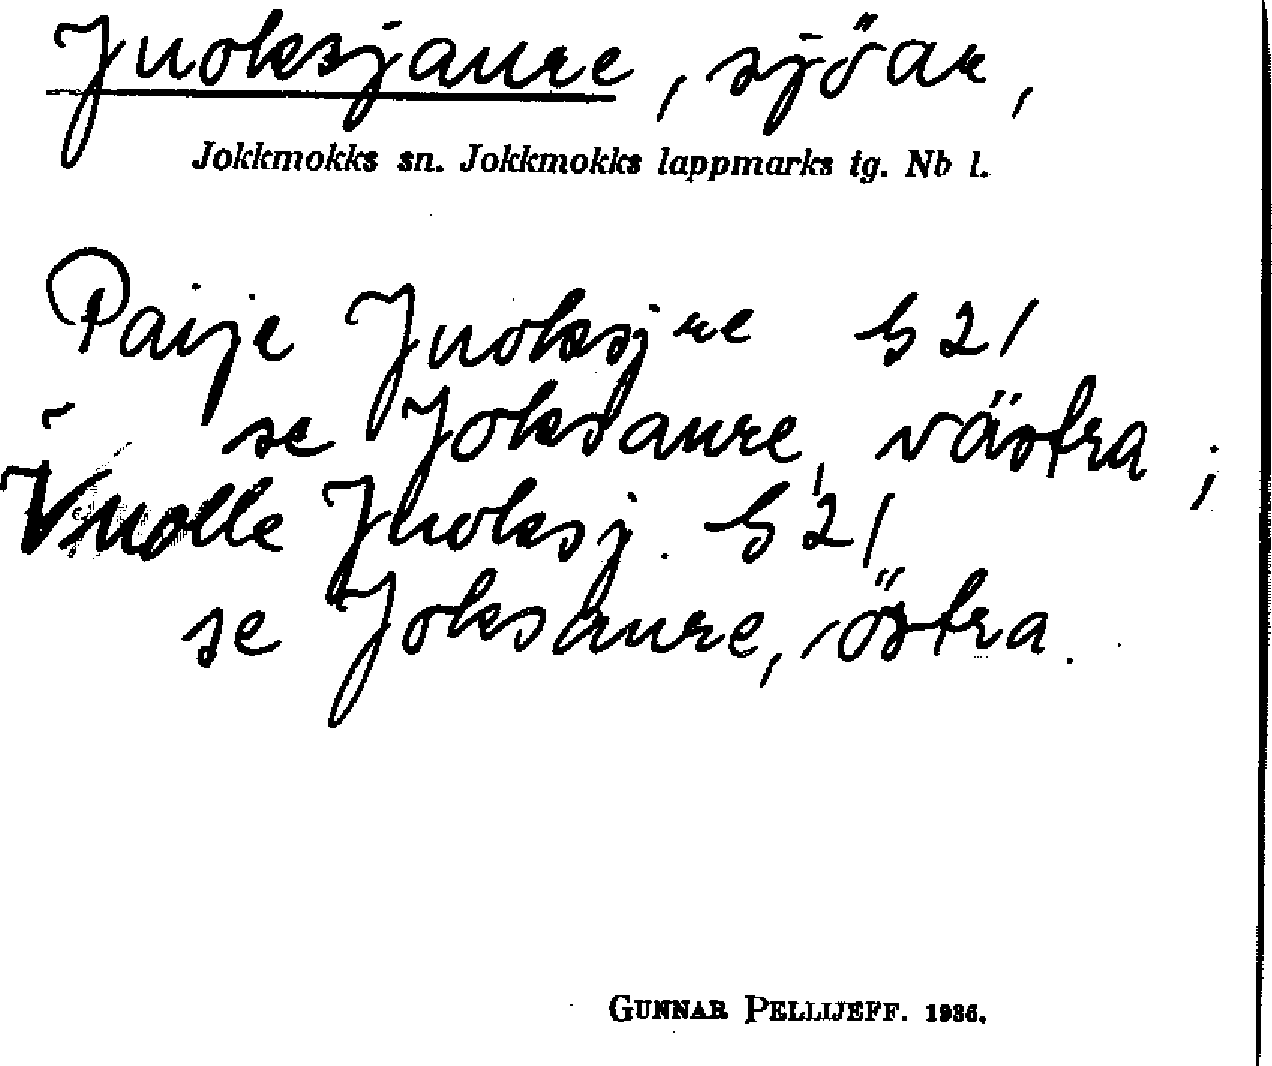 Juoksjaure, sjöar,
Jokkmokks sn. Jokkmokks lappmarks tg. Nb l.
Paije Juoksjre G 21
se Joksaure, västra ;
Vuolle Juoksj. G 21
se Joksaure, östra.
GUNNAR PELLIJEFF. 1936.